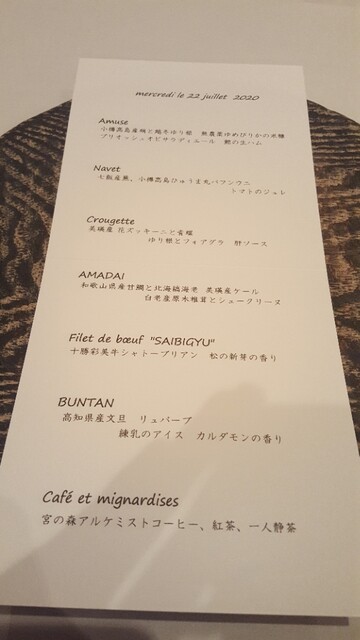 mercredi le 22 juillet 2020
Amuse
小樽高島産鰊と越冬ゆり姫 無農薬ゆめぴりかの米糠
ブリオッシュオピサラディエール 鮫の生ハム
Navet
七飯産蕪、小樽高島ひゅうま丸バフンウニ
トマトのジュレ
Crougette
美瑛産 花ズッキーニと青曜
ゆり根とフォアグラ 肝ソース
AMADAI
和歌山県産甘鯛と北海縞海老 美瑛産ケール
白老産原木椎茸とシュークリーヌ
Filet de bœuf "SAIBIGYU"
十勝彩美牛シャトーブリアン 松の新芽の香り
BUNTAN
高知県産文旦 リュバーブ
練乳のアイス カルダモンの香り
Café et mignardises
宮の森アルケミストコーヒー、紅茶、一人静茶